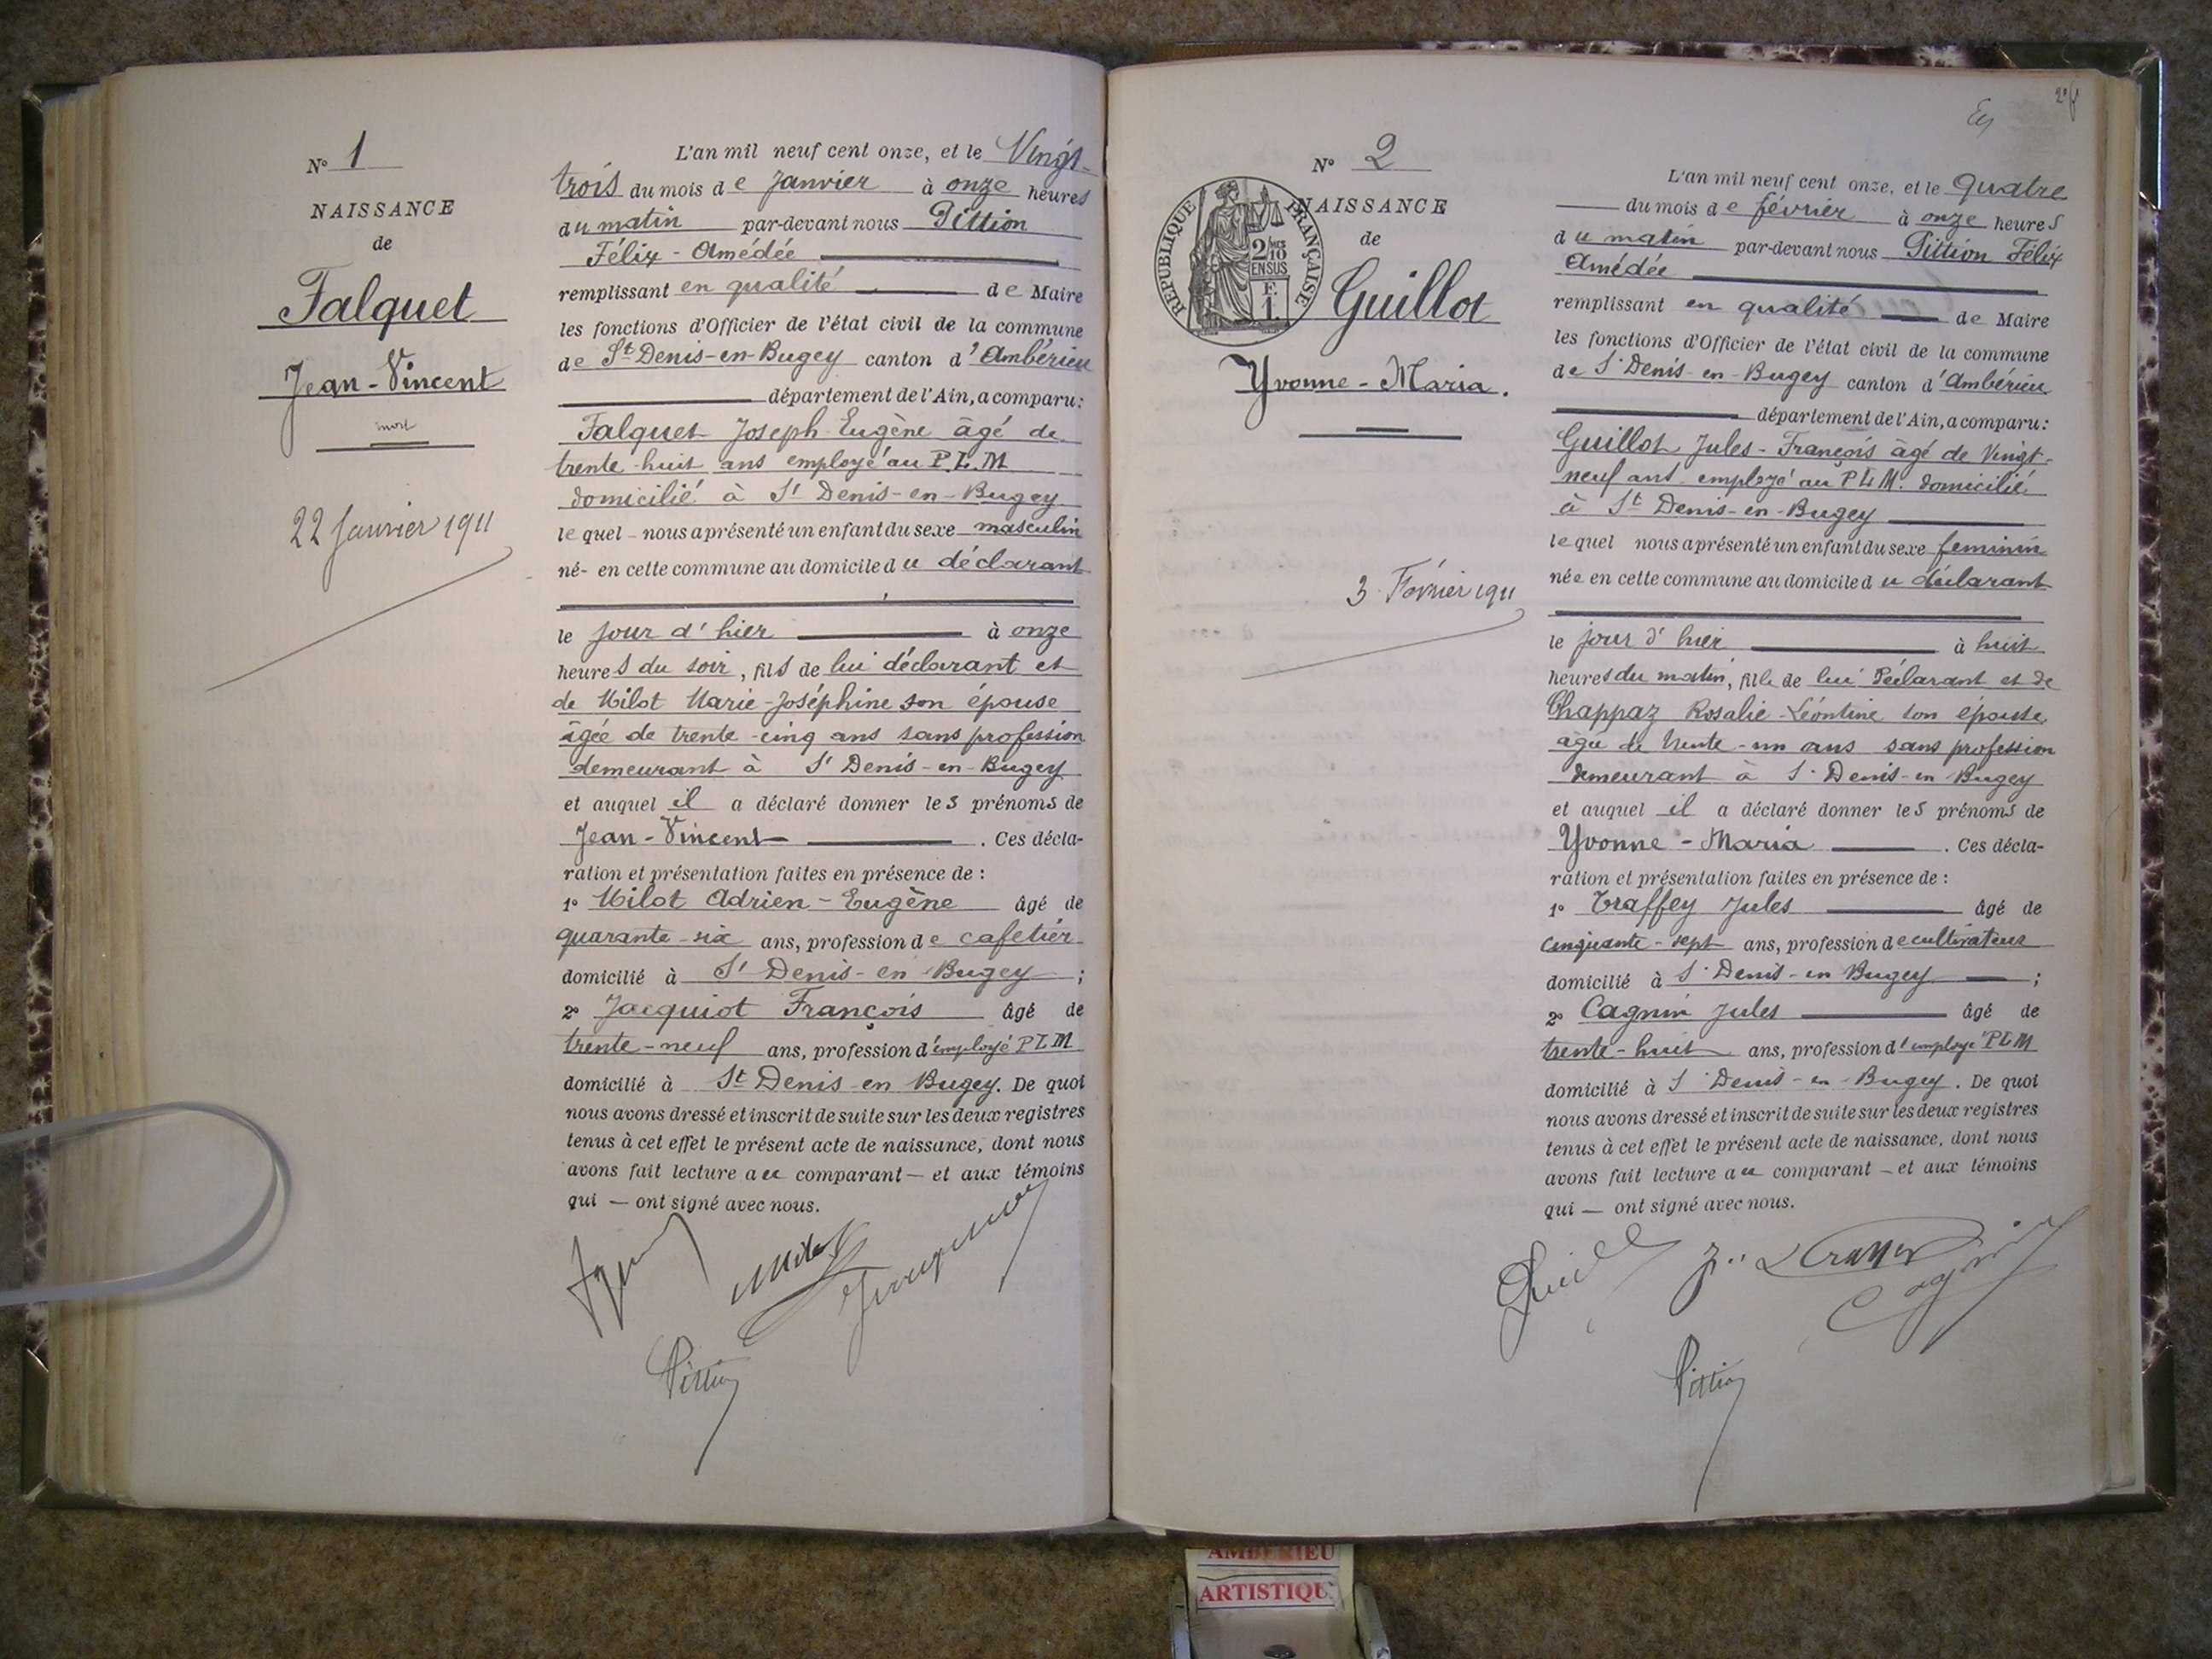 N° 1
NAISSANCE
de
Falquet
Jean-Vincent
mort
22 Janvier 1911
L'an mil neuf cent onze, et le Vingt-
trois du mois de Janvier à onze heures
du matin par-devant nous Pittion
Félix-Amédée
remplissant en qualité de Maire
les fonctions d'Officier de l'état civil de la commune
de St Denis-en-Bugey canton d'Ambérieu
département de l'Ain, a comparu:
Falquet Joseph Eugène âgé de
trente-huit ans employé au P.L.M
domicilié à St Denis-en-Bugey
lequel nous a présenté un enfant du sexe masculin
né- en cette commune au domicile du déclarant
le jour d'hier à onze
heures du soir, fils de lui déclarant et
de Milot Marie-Joséphine son épouse
âgée de trente-cinq ans sans profession
demeurant à St Denis-en-Bugey
et auquel il a déclaré donner les prénoms de
Jean-Vincent . Ces décla-
ration et présentation faites en présence de :
1° Milot Adrien-Eugène âgé de
quarante-six ans, profession de cafetier
domicilié à St Denis-en-Bugey ;
2° Jacquiot François âgé de
trente-neuf ans, profession d'employé PLM
domicilié à St Denis-en Bugey. De quoi
nous avons dressé et inscrit de suite sur les deux registres
tenus à cet effet le présent acte de naissance, dont nous
avons fait lecture au comparant — et aux témoins
qui — ont signé avec nous.
Milot
Pittion
N° 2
NAISSANCE
de
RÉPUBLIQUE FRANÇAISE
2/10
EN SUS
F.
1
Guillot
Yvonne-Maria.
3 Février 1911
L'an mil neuf cent onze, et le quatre
du mois de février à onze heures
du matin par-devant nous Pittion Félix
Amédée
remplissant en qualité de Maire
les fonctions d'Officier de l'état civil de la commune
de St Denis-en-Bugey canton d'Ambérieu
département de l'Ain, a comparu:
Guillot Jules-François âgé de Vingt-
neuf ans employé au PLM. domicilié
à St Denis-en-Bugey
lequel nous a présenté un enfant du sexe feminin
née en cette commune au domicile du déclarant
le jour d'hier à huit
heures du matin, fille de lui Déclarant et de
Chappaz Rosalie-Léontine son épouse
âgée de trente-un ans sans profession
demeurant à St Denis-en-Bugey
et auquel il a déclaré donner les prénoms de
Yvonne-Maria . Ces décla-
ration et présentation faites en présence de :
1° Traffey Jules âgé de
cinquante-sept ans, profession de cultivateur
domicilié à St Denis-en Bugey ;
2° Cagnin Jules âgé de
trente-huit ans, profession d'employé PLM
domicilié à St Denis-en-Bugey. De quoi
nous avons dressé et inscrit de suite sur les deux registres
tenus à cet effet le présent acte de naissance, dont nous
avons fait lecture au comparant — et aux témoins
qui — ont signé avec nous.
Cagnin
Pittion
AMBERIEU
ARTISTIQU